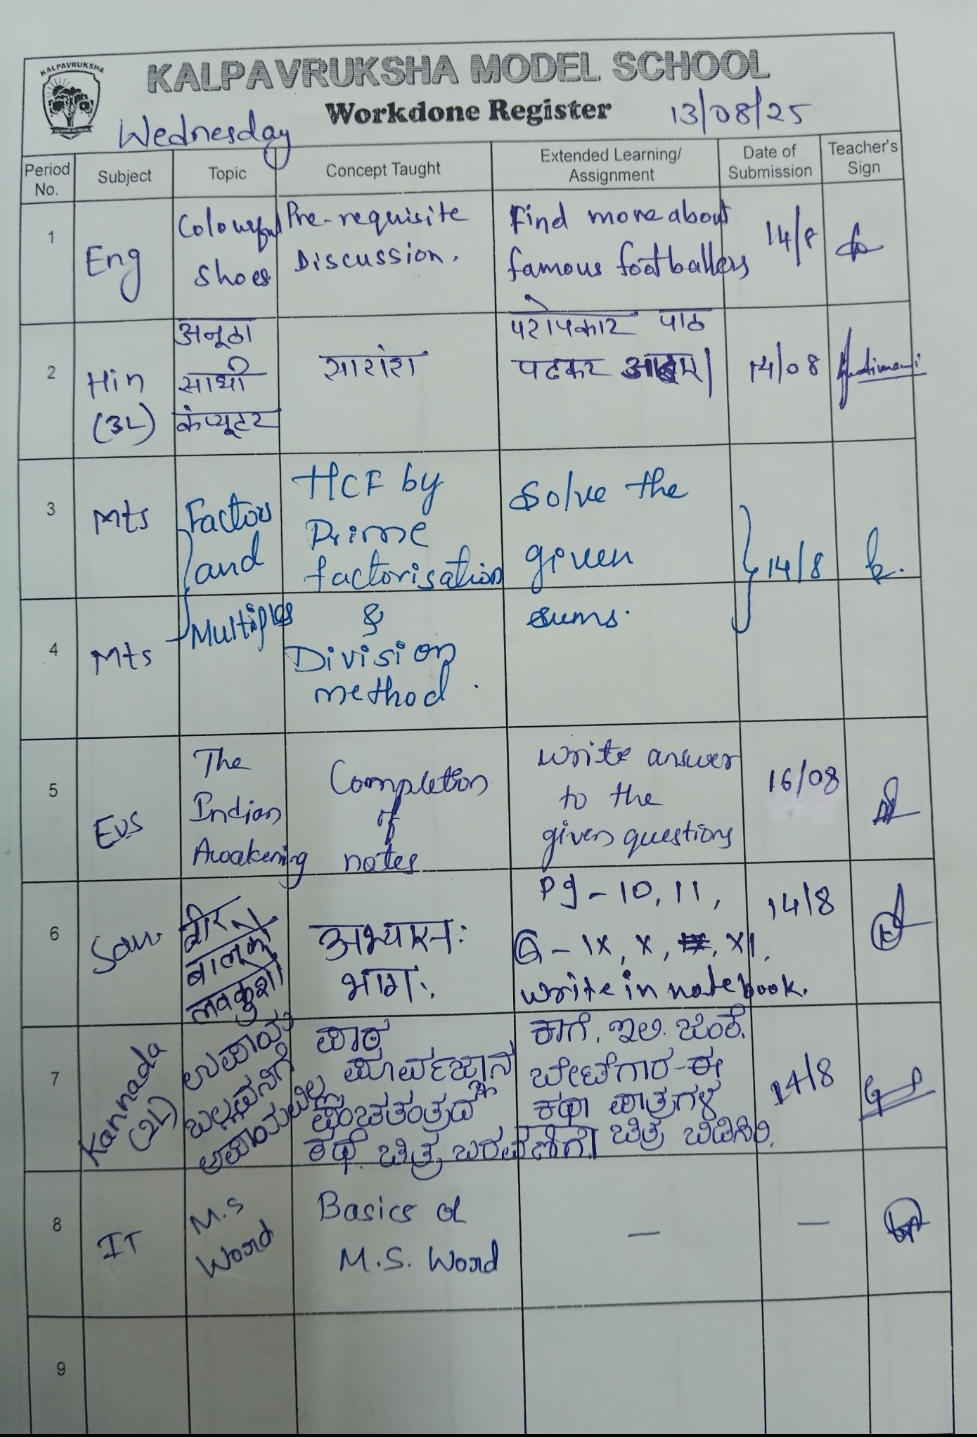 KALPAVRUKSHA
KALPAVRUKSHA MODEL SCHOOL
Workdone Register
13/08/25
Wednesday
Period No.
Subject
Topic
Concept Taught
Extended Learning/ Assignment
Date of Submission
Teacher's Sign
1
Eng
Colourful
Shoes
Pre-requisite
Discussion.
Find more about
famous footballers
14/8
2
Hin
(3L)
अनूठा
साथी
कंप्यूटर
सारांश
परोपकार पाठ
पढकर
14/08
3
Mts
Factors
and
Multiples
HCF by
Prime
factorisation
&
Division
method.
Solve the
given
sums.
14/8
4
Mts
5
EVS
The
Indian
Awakening
Completion
of
notes
Write answer
to the
given questions
16/08
6
San.
वीर
बालकौ
लवकुशौ
अभ्यासः
भागः.
Pg - 10, 11,
Q - IX, X, XI.
Write in notebook.
14/8
7
Kannada
(2L)
ಉಪಾಯ
ಬಲ್ಲವನಿಗೆ
ಅಪಾಯವಿಲ್ಲ
ಪಾಠ
ಪೂರ್ವಜ್ಞಾನ
ಪಂಚತಂತ್ರದ
ಕಥೆ ಚಿತ್ರ ಬರವಣಿಗೆ
ಕಾಗೆ, ಇಲಿ, ಜಿಂಕೆ,
ಬೇಟೆಗಾರ-ಈ
ಕಥಾ ಪಾತ್ರಗಳ
ಚಿತ್ರ ಬಿಡಿಸಿರಿ.
14/8
8
IT
M.S
Word
Basics of
M.S. Word
—
—
9